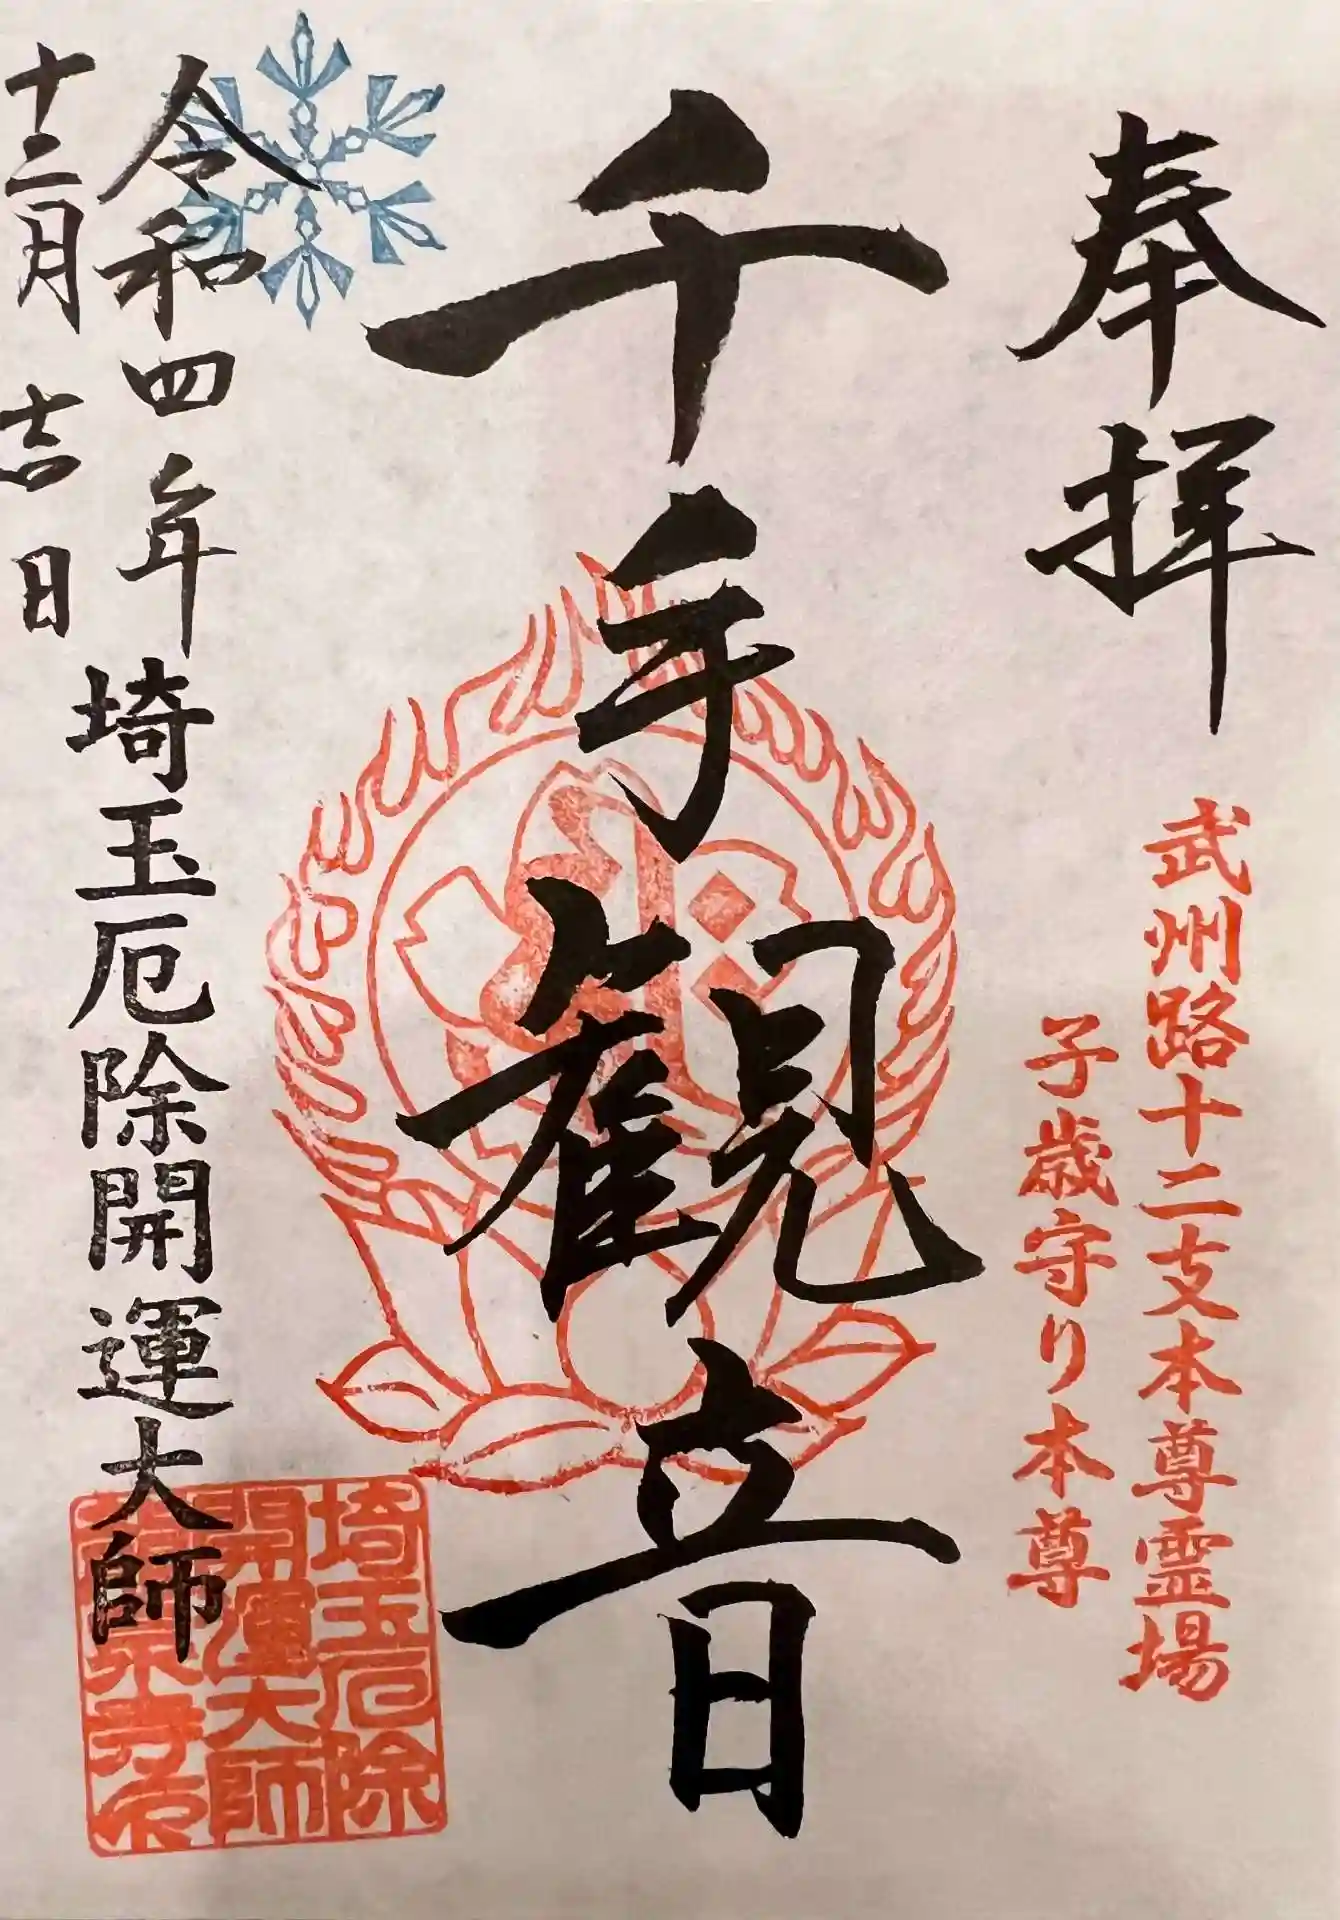 奉拝
武州路十二支本尊霊場
子歳守り本尊
千手観音
令和四年
十二月吉日
埼玉厄除開運大師
埼玉厄除
開運大師